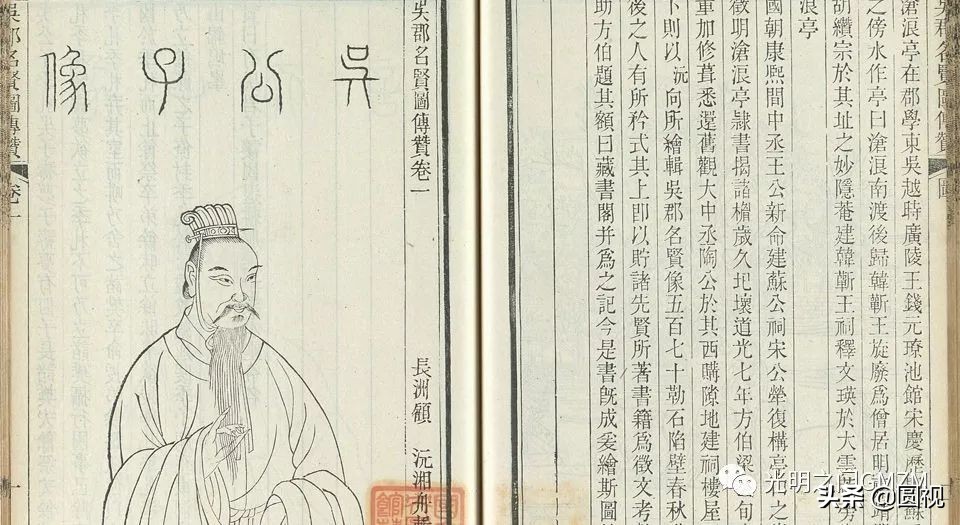 吳郡名賢圖傳贊
圖
滄浪亭在郡學東吳越時廣陵王錢元璙池館宋慶歷蘇
之傍水作亭曰滄浪南渡後歸韓蘄王旋廢爲僧居明靖
胡纘宗於其址之妙隱菴建韓蘄王祠釋文瑛於大雲旁
浪亭
國朝康熙間中丞王公新命建蘇公祠宋公犖復構亭之
徵明滄浪亭隷書揭諸楣歲久圯壞道光七年方伯梁
重加修葺悉還舊觀大中丞陶公於其西購隙地建祠樓屋
下則以沅向所繪輯吳郡名賢像五百七十勒石陷壁春秋
後之人有所矜式其上即以貯諸先賢所著書籍爲徵文考
助方伯題其額曰藏書閣并爲之記今是書旣成爰繪斯圖
吳郡名賢圖傳贊卷一
長洲顧 沅湘舟
吳公子像
吳郡名賢圖傳贊
卷一
一
光明之WZM
头条 @圆视